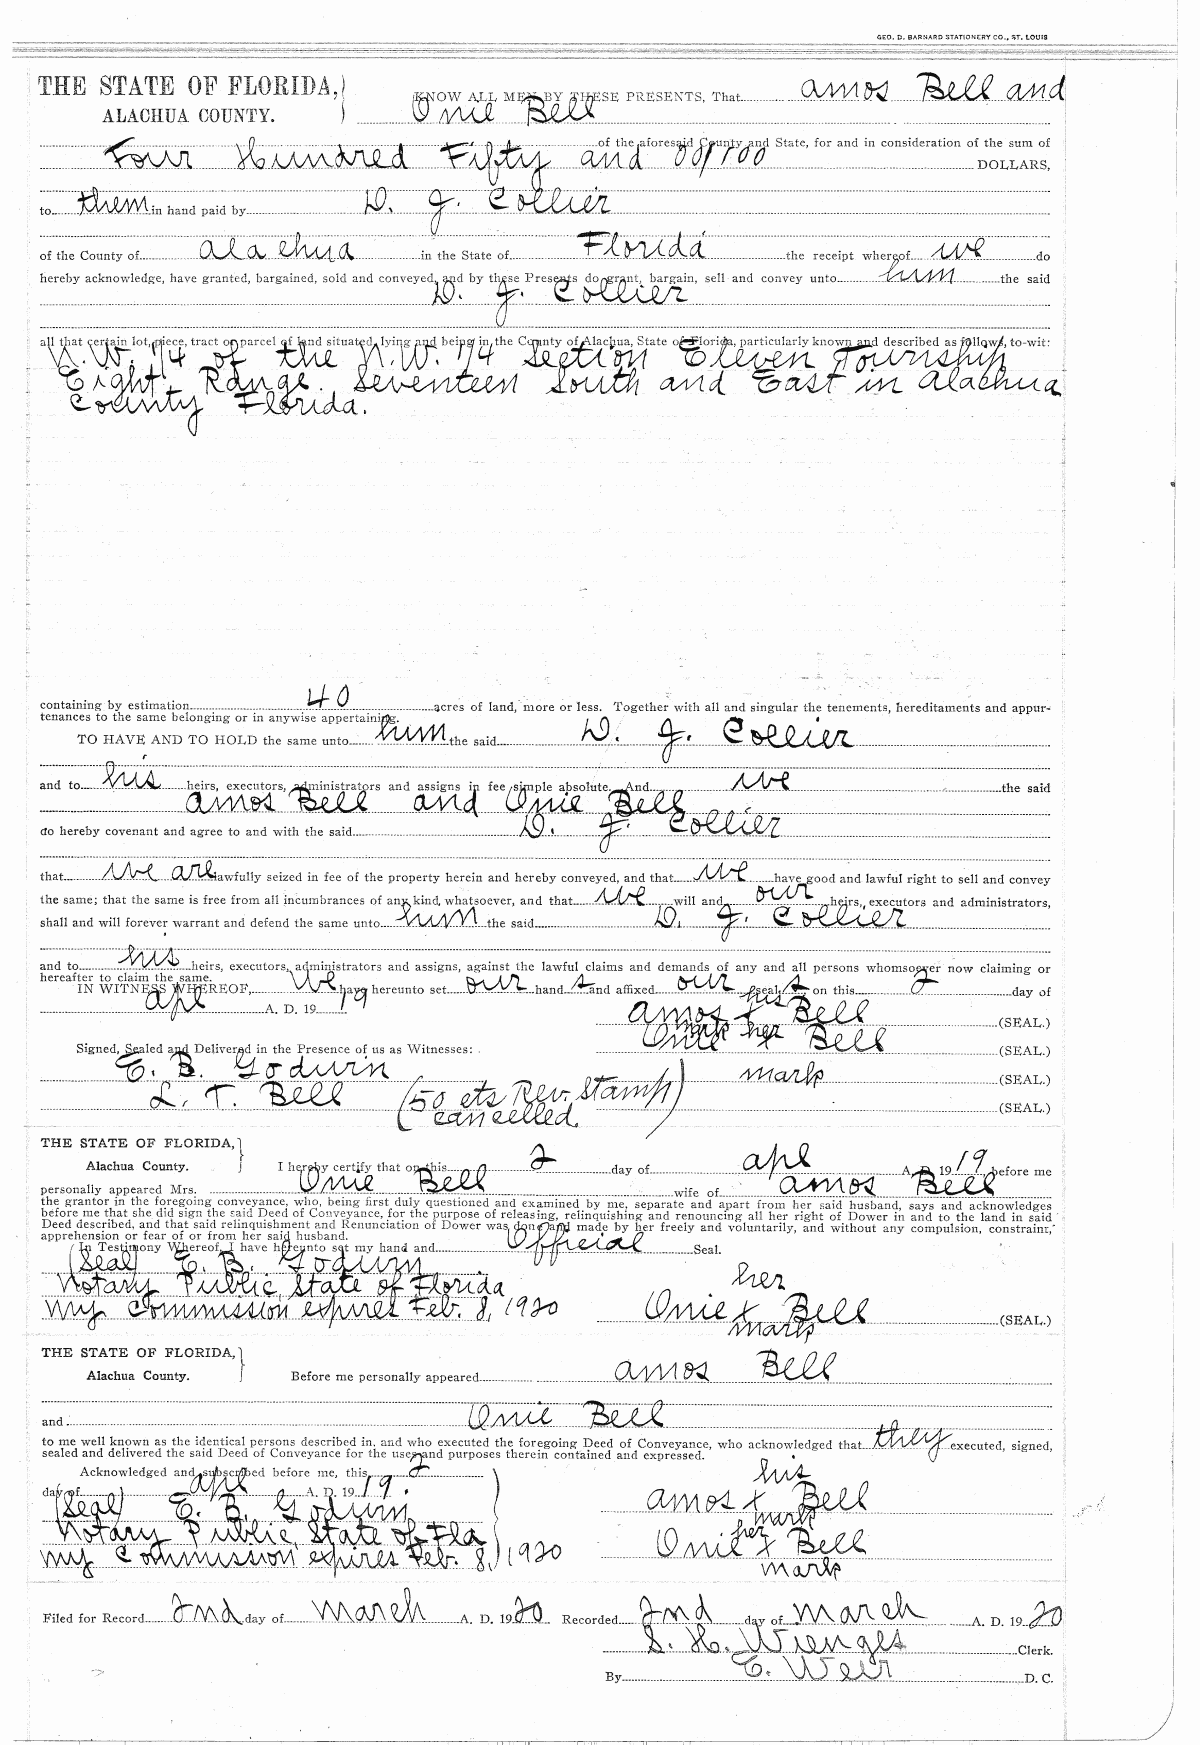 GEO. D. BARNARD STATIONERY CO., ST. LOUIS
THE STATE OF FLORIDA, KNOW ALL MEN BY THESE PRESENTS, That Amos Bell and
ALACHUA COUNTY. Onie Bell
of the aforesaid County and State, for and in consideration of the sum of
Four Hundred Fifty and 00/100 DOLLARS,
to them in hand paid by D. J. Collier
of the County of Alachua in the State of Florida the receipt whereof we do
hereby acknowledge, have granted, bargained, sold and conveyed, and by these Presents do grant, bargain, sell and convey unto him the said
D. J. Collier
all that certain lot, piece, tract or parcel of land situated, lying and being in the County of Alachua, State of Florida, particularly known and described as follows, to-wit:
N.W. 1/4 of the N.W. 1/4 Section Eleven Township
Eight Range Seventeen South and East in Alachua
County Florida.
containing by estimation 40 acres of land, more or less. Together with all and singular the tenements, hereditaments and appur-
tenances to the same belonging or in anywise appertaining.
TO HAVE AND TO HOLD the same unto him the said D. J. Collier
and to his heirs, executors, administrators and assigns in fee simple absolute. And we the said
Amos Bell and Onie Bell
do hereby covenant and agree to and with the said D. J. Collier
that we are lawfully seized in fee of the property herein and hereby conveyed, and that we have good and lawful right to sell and convey
the same; that the same is free from all incumbrances of any kind, whatsoever, and that we will and our heirs, executors and administrators,
shall and will forever warrant and defend the same unto him the said D. J. Collier
and to his heirs, executors, administrators and assigns, against the lawful claims and demands of any and all persons whomsoever now claiming or
hereafter to claim the same.
IN WITNESS WHEREOF, We have hereunto set our hand s and affixed our seal s on this 2 day of
Apl A. D. 19 19
his
Amos x Bell (SEAL.)
mark her
Onie x Bell (SEAL.)
Signed, Sealed and Delivered in the Presence of us as Witnesses:
E. B. Godwin mark (SEAL.)
L. T. Bell (50 cts Rev. Stamp) (SEAL.)
cancelled.
THE STATE OF FLORIDA,
Alachua County. I hereby certify that on this 2 day of Apl A. D. 19 19 before me
personally appeared Mrs. Onie Bell wife of Amos Bell
the grantor in the foregoing conveyance, who, being first duly questioned and examined by me, separate and apart from her said husband, says and acknowledges
before me that she did sign the said Deed of Conveyance, for the purpose of releasing, relinquishing and renouncing all her right of Dower in and to the land in said
Deed described, and that said relinquishment and Renunciation of Dower was done and made by her freely and voluntarily, and without any compulsion, constraint,
apprehension or fear of or from her said husband.
In Testimony Whereof, I have hereunto set my hand and Official Seal.
(Seal) E. B. Godwin
Notary Public, State of Florida her
My Commission expires Feb. 8, 1920 Onie x Bell (SEAL.)
mark
THE STATE OF FLORIDA,
Alachua County. Before me personally appeared Amos Bell
and Onie Bell
to me well known as the identical persons described in, and who executed the foregoing Deed of Conveyance, who acknowledged that they executed, signed,
sealed and delivered the said Deed of Conveyance for the uses and purposes therein contained and expressed.
Acknowledged and subscribed before me, this 2 his
day of Apl A. D. 19 19. Amos x Bell
(Seal) E. B. Godwin mark
Notary Public, State of Fla her
My Commission expires Feb. 8, 1920 Onie x Bell
mark
Filed for Record 2nd day of March A. D. 19 20 Recorded 2nd day of March A. D. 19 20
S. H. Wienges Clerk.
By E. Weir D. C.